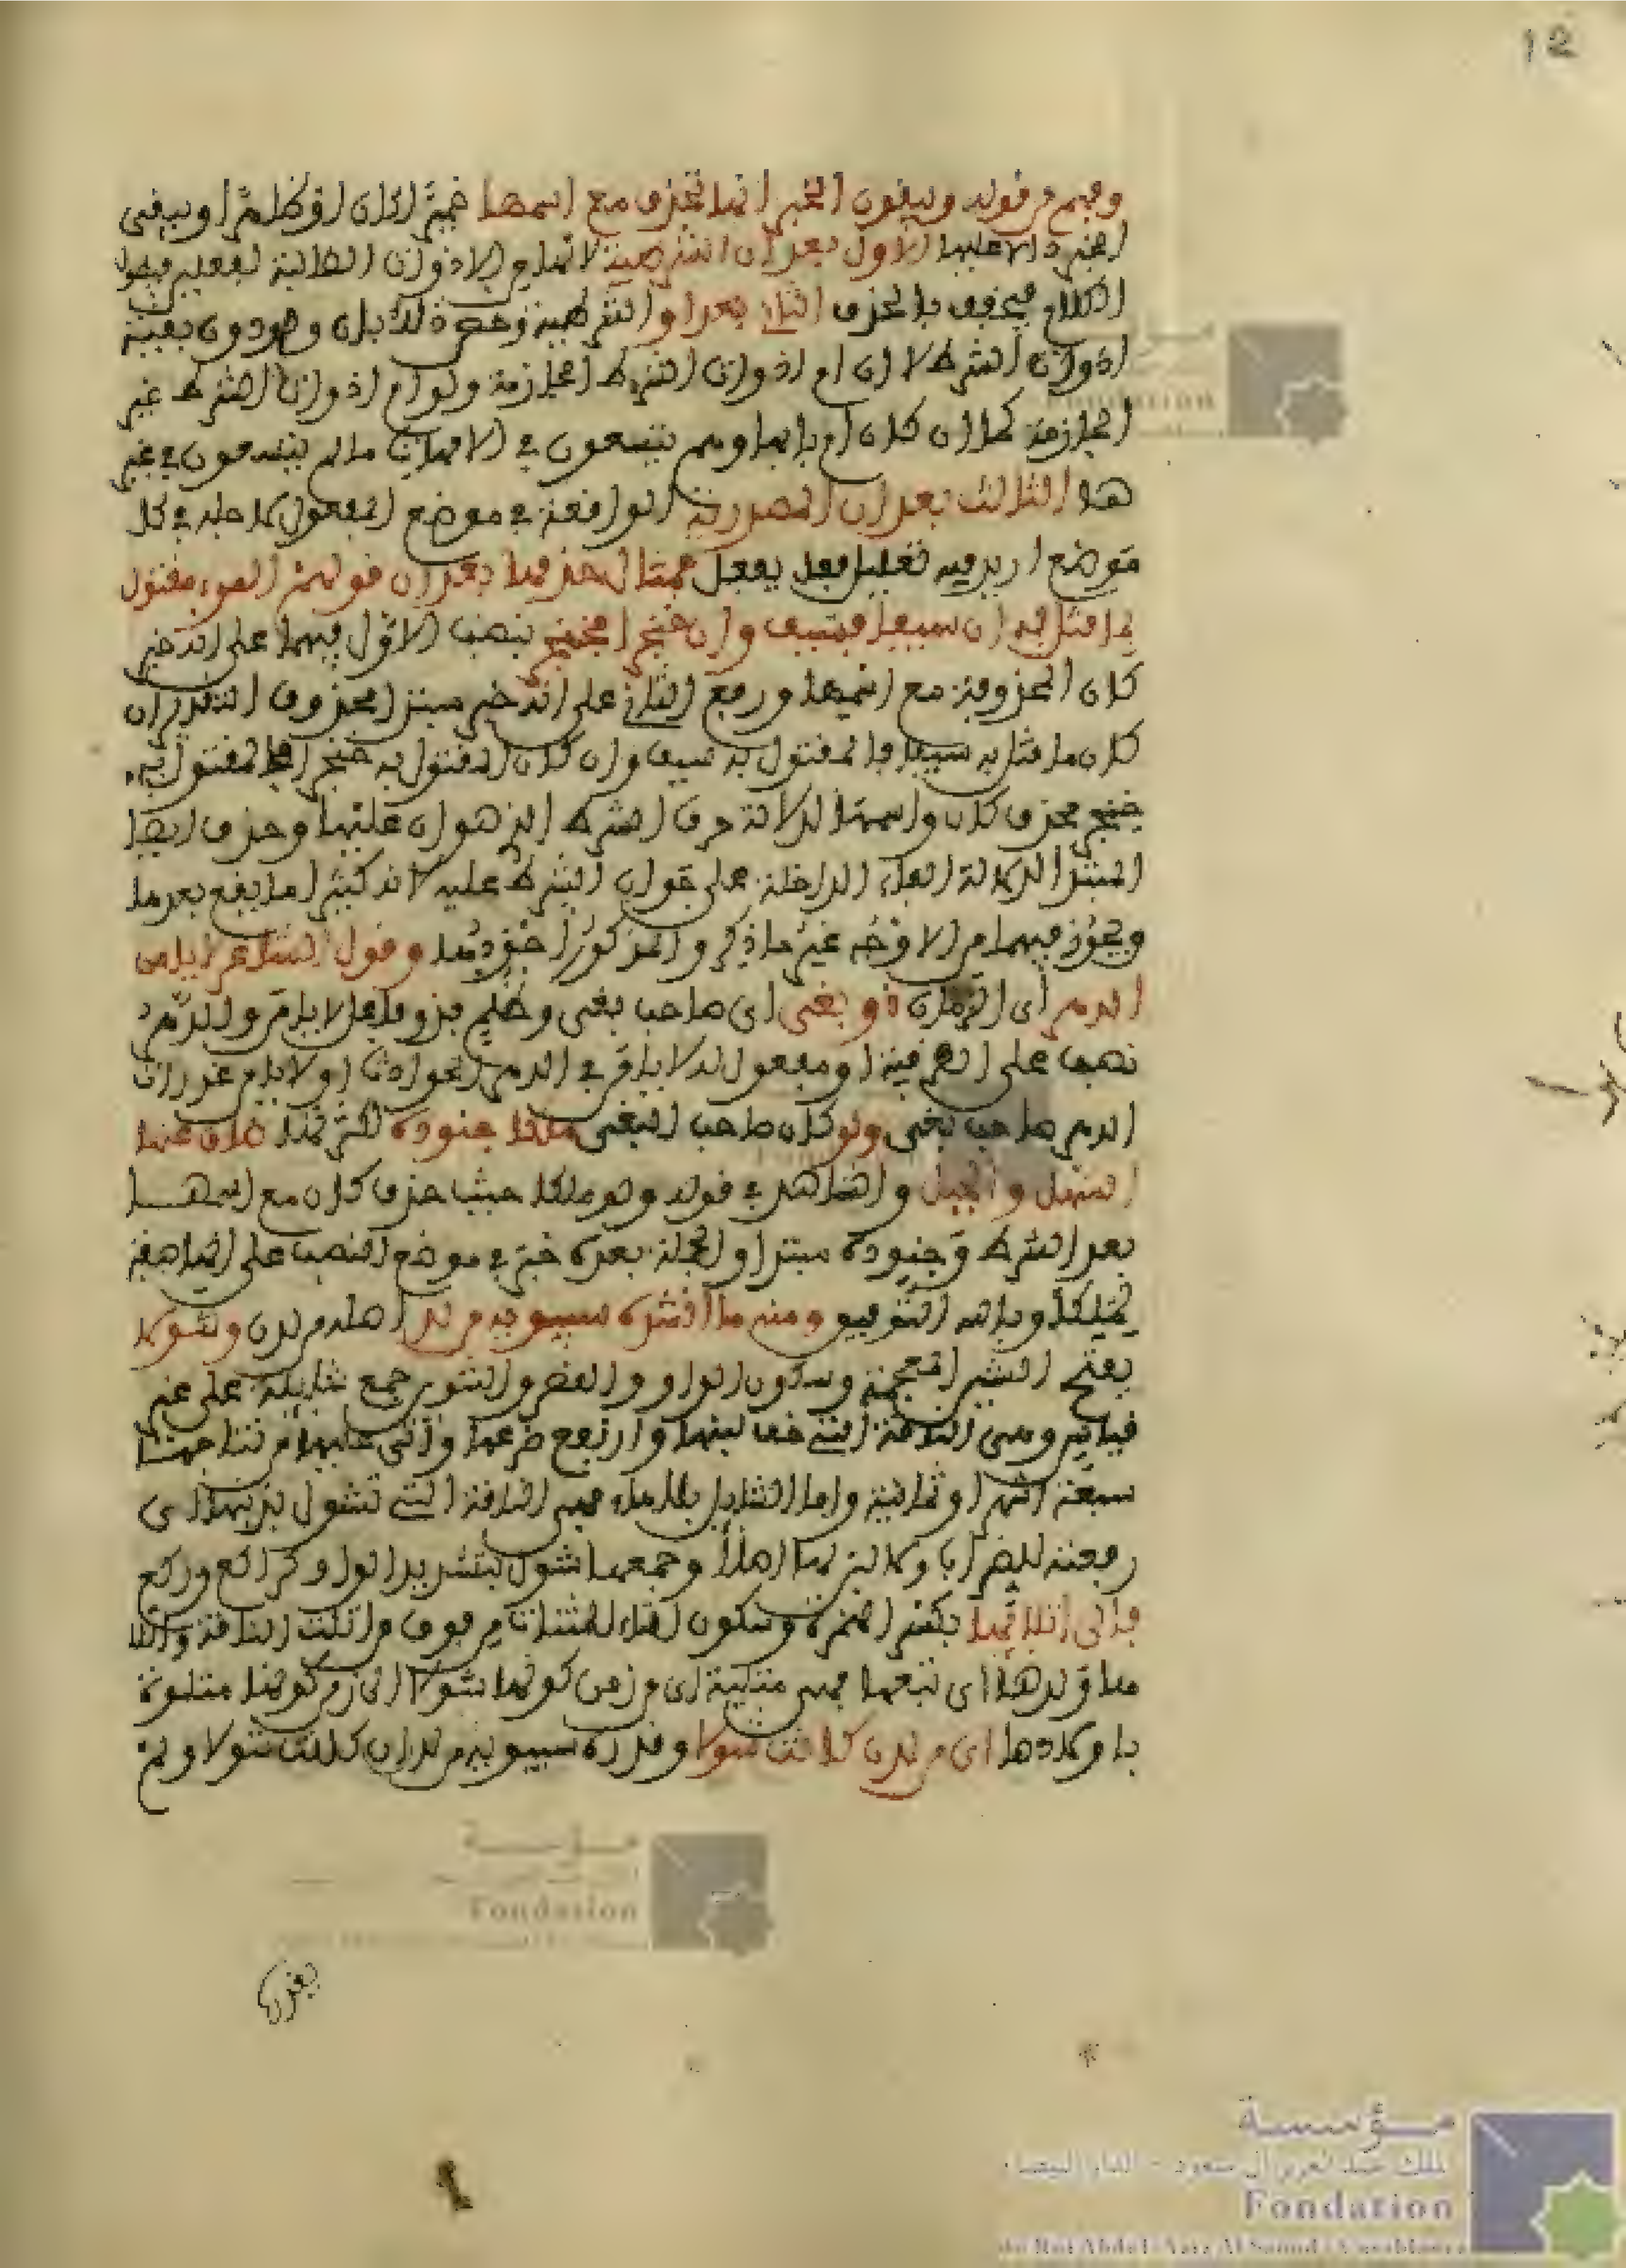 12
وفهم من قوله ويبقون الخبر انها تحذف مع اسمها ضميرا كان او ظاهرا ويبقى
الخبر دالا عليها الاول بعد ان الشرطية لانها من الادوات الطالبة لفعلين فيطول
الكلام فيخفف بالحذف الثاني بعد لو الشرطية وخص ذلك بان ولو دون بقية
ادوات الشرط لان ان ام ادوات الشرط الجازمة ولو ام ادوات الشرط غير
الجازمة كما ان كان ام بابها وهم يتسعون في الامهات ما لم يتسعون في غير
ها الثالث بعد ان المصدرية الواقعة في موضع المفعول لاجله في كل
موضع اريد فيه تعليل فعل بفعل فمثال حذفها بعد ان قولهم المرء مقتول
بما قتل به ان سيفا فسيف وان خنجرا فخنجر بنصب الاول فيهما على انه خبر
كان المحذوفة مع اسمها ورفع الثاني على انه خبر مبتدا محذوف التقدير ان
كان ما قتل به سيفا فالمقتول به سيف وان كان المقتول به خنجرا فالمقتول به
خنجر فحذف كان واسمها لدلالة حرف الشرط الذي هو ان عليها وحذف ايضا
المبتدا لدلالة الفاء الداخلة على جواب الشرط عليه لانه كثيرا ما يقع بعدها
ويجوز فيهما من الاوجه غير ما ذكر والمذكور اجودها وقول الشاعر لا يامن
الدهر اي الزمان ذو بغى اي صاحب بغى وظلم فذو فاعل لا يامن والدهر
نصب على الظرفية او مفعول به لا يامن في الدهر الحوادث او لا يامن غدرات
الدهر صاحب بغى ولو كان صاحب البغى ملكا جنوده لكثرتها ضاق عنها
السهل والجبل والشاهد في قوله ولو ملكا حيث حذف كان مع اسمها
بعد الشرط وجنوده مبتدا والجملة بعده خبر في موضع النصب على انها صفة
لملكا وبالله التوفيق ومنه ما انشده سيبويه من لد اصله من لدن وشولا
بفتح الشين المعجمة وسكون الواو والشول جمع شايلة على غير
قياس وهى الناقة التي خف لبنها وارتفع ضرعها واتى عليها من نتاجها
سبعة اشهر او ثمانية واما الشايل بلا هاء فهي الناقة التي تشول بذنبها اى
رفعته للضراب ولا لبن لها اصلا وجمعها شول بتشديد الواو كراكع وركع
فالى اتلائها بكسر الهمزة وسكون التاء المثناة من فوق من اتلت الناقة اذا
تلاها ولدها اى تبعها فهي متلية اى من زمن كونها شولا الى زمن كونها متلوة
باولادها اى من لدن كانت شولا وقدره سيبويه من لد ان كانت شولا ولم
يقدر
مؤسسة
الملك عبد العزيز آل سعود - الدار البيضاء
Fondation
du Roi Abdul-Aziz Al Saoud - Casablanca